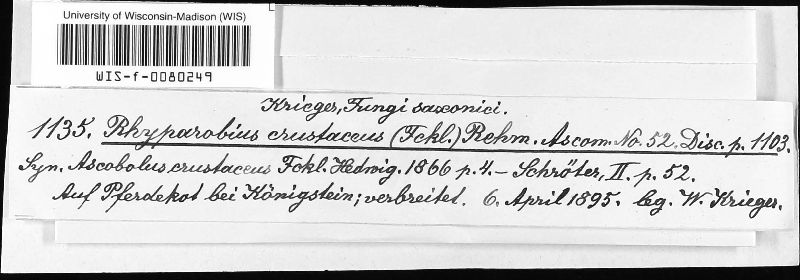 University of Wisconsin-Madison (WIS)
WIS-f-0080249
Krieger, Fungi saxonici.
1135. Rhyparobius crustaceus (Fckl.) Rehm. Ascom. No. 52. Disc. p. 1103.
Syn. Ascobolus crustaceus Fckl. Hedwig. 1866 p. 4. – Schröter, II. p. 52.
Auf Pferdekot bei Königstein; verbreitet. 6. April 1895. leg. W. Krieger.